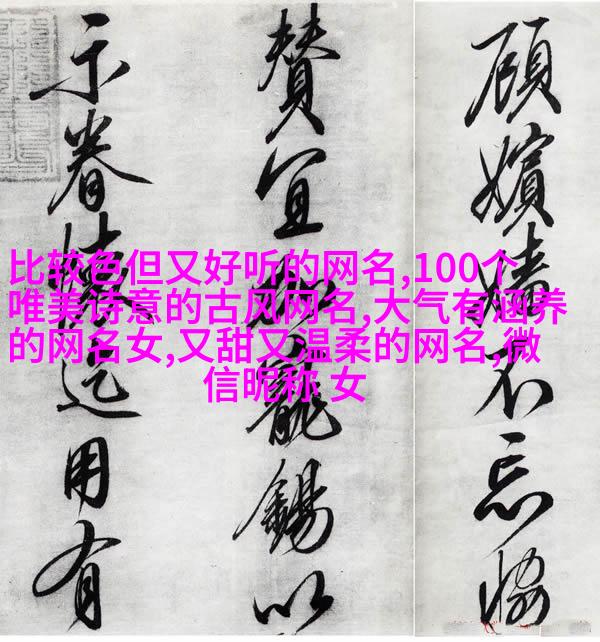 比较色但又好听的网名,100个
唯美诗意的古风网名,大气有涵养
的网名女,又甜又温柔的网名,微
信昵称 女
顧嬪嬙不忘恊
賛宜寵錫以
示眷懷用有